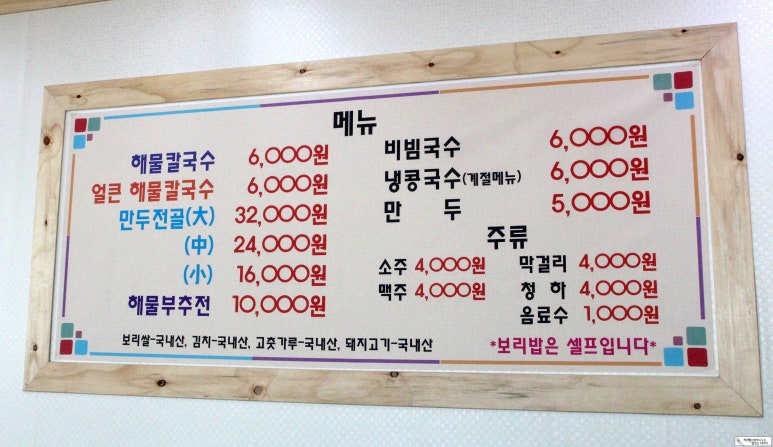 메뉴
해물칼국수 6,000원
얼큰 해물칼국수 6,000원
만두전골(大) 32,000원
(中) 24,000원
(小) 16,000원
해물부추전 10,000원
비빔국수 6,000원
냉콩국수(계절메뉴) 6,000원
만 두 5,000원
주류
소주 4,000원
맥주 4,000원
막걸리 4,000원
청 하 4,000원
음료수 1,000원
보리쌀-국내산, 김치-국내산, 고춧가루-국내산, 돼지고기-국내산
*보리밥은 셀프입니다*